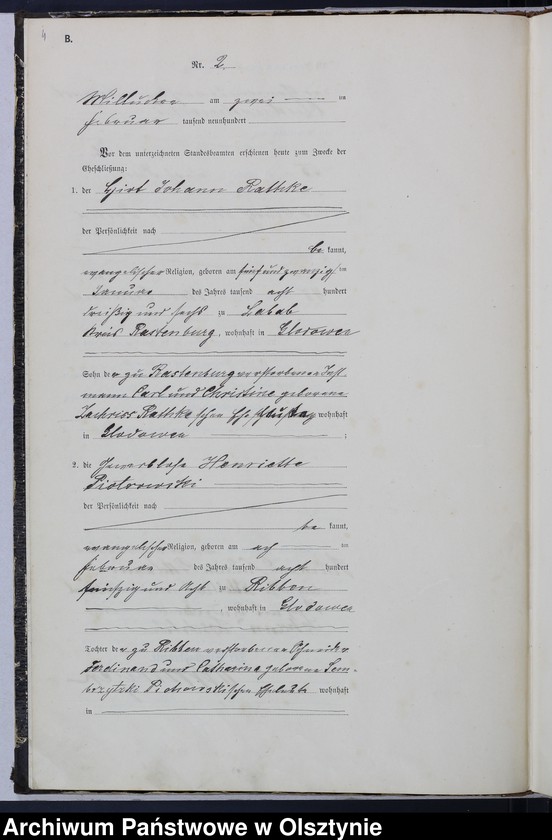 4
B.
Nr. 2.
am zwei ten
Februar tausend neunhundert
Vor dem unterzeichneten Standesbeamten erschienen heute zum Zwecke der
Eheschließung:
1. der Hirt Johann Rathke
der Persönlichkeit nach
be kannt,
evangelischer Religion, geboren am fünfundzwanzig ten
Januar des Jahres tausend acht hundert
dreißig und sechs zu Babab
Kreis Rastenburg, wohnhaft in Glodowen
Sohn der zu Rastenburg verstorbenen Inst
mann Carl und Christine geborene
Rathke'schen wohnhaft
in Glodowen ;
2. die Henriette
Piotrowski
der Persönlichkeit nach
be kannt,
evangelischer Religion, geboren am ach ten
Februar des Jahres tausend acht hundert
fünfzig und acht zu Ribben
, wohnhaft in Glodowen
Tochter der zu Ribben verstorbenen Schneider
Ferdinand und Catharina geborene Sem-
brzytzki Piotrowski'schen Eheleute wohnhaft
in
Archiwum Państwowe w Olsztynie